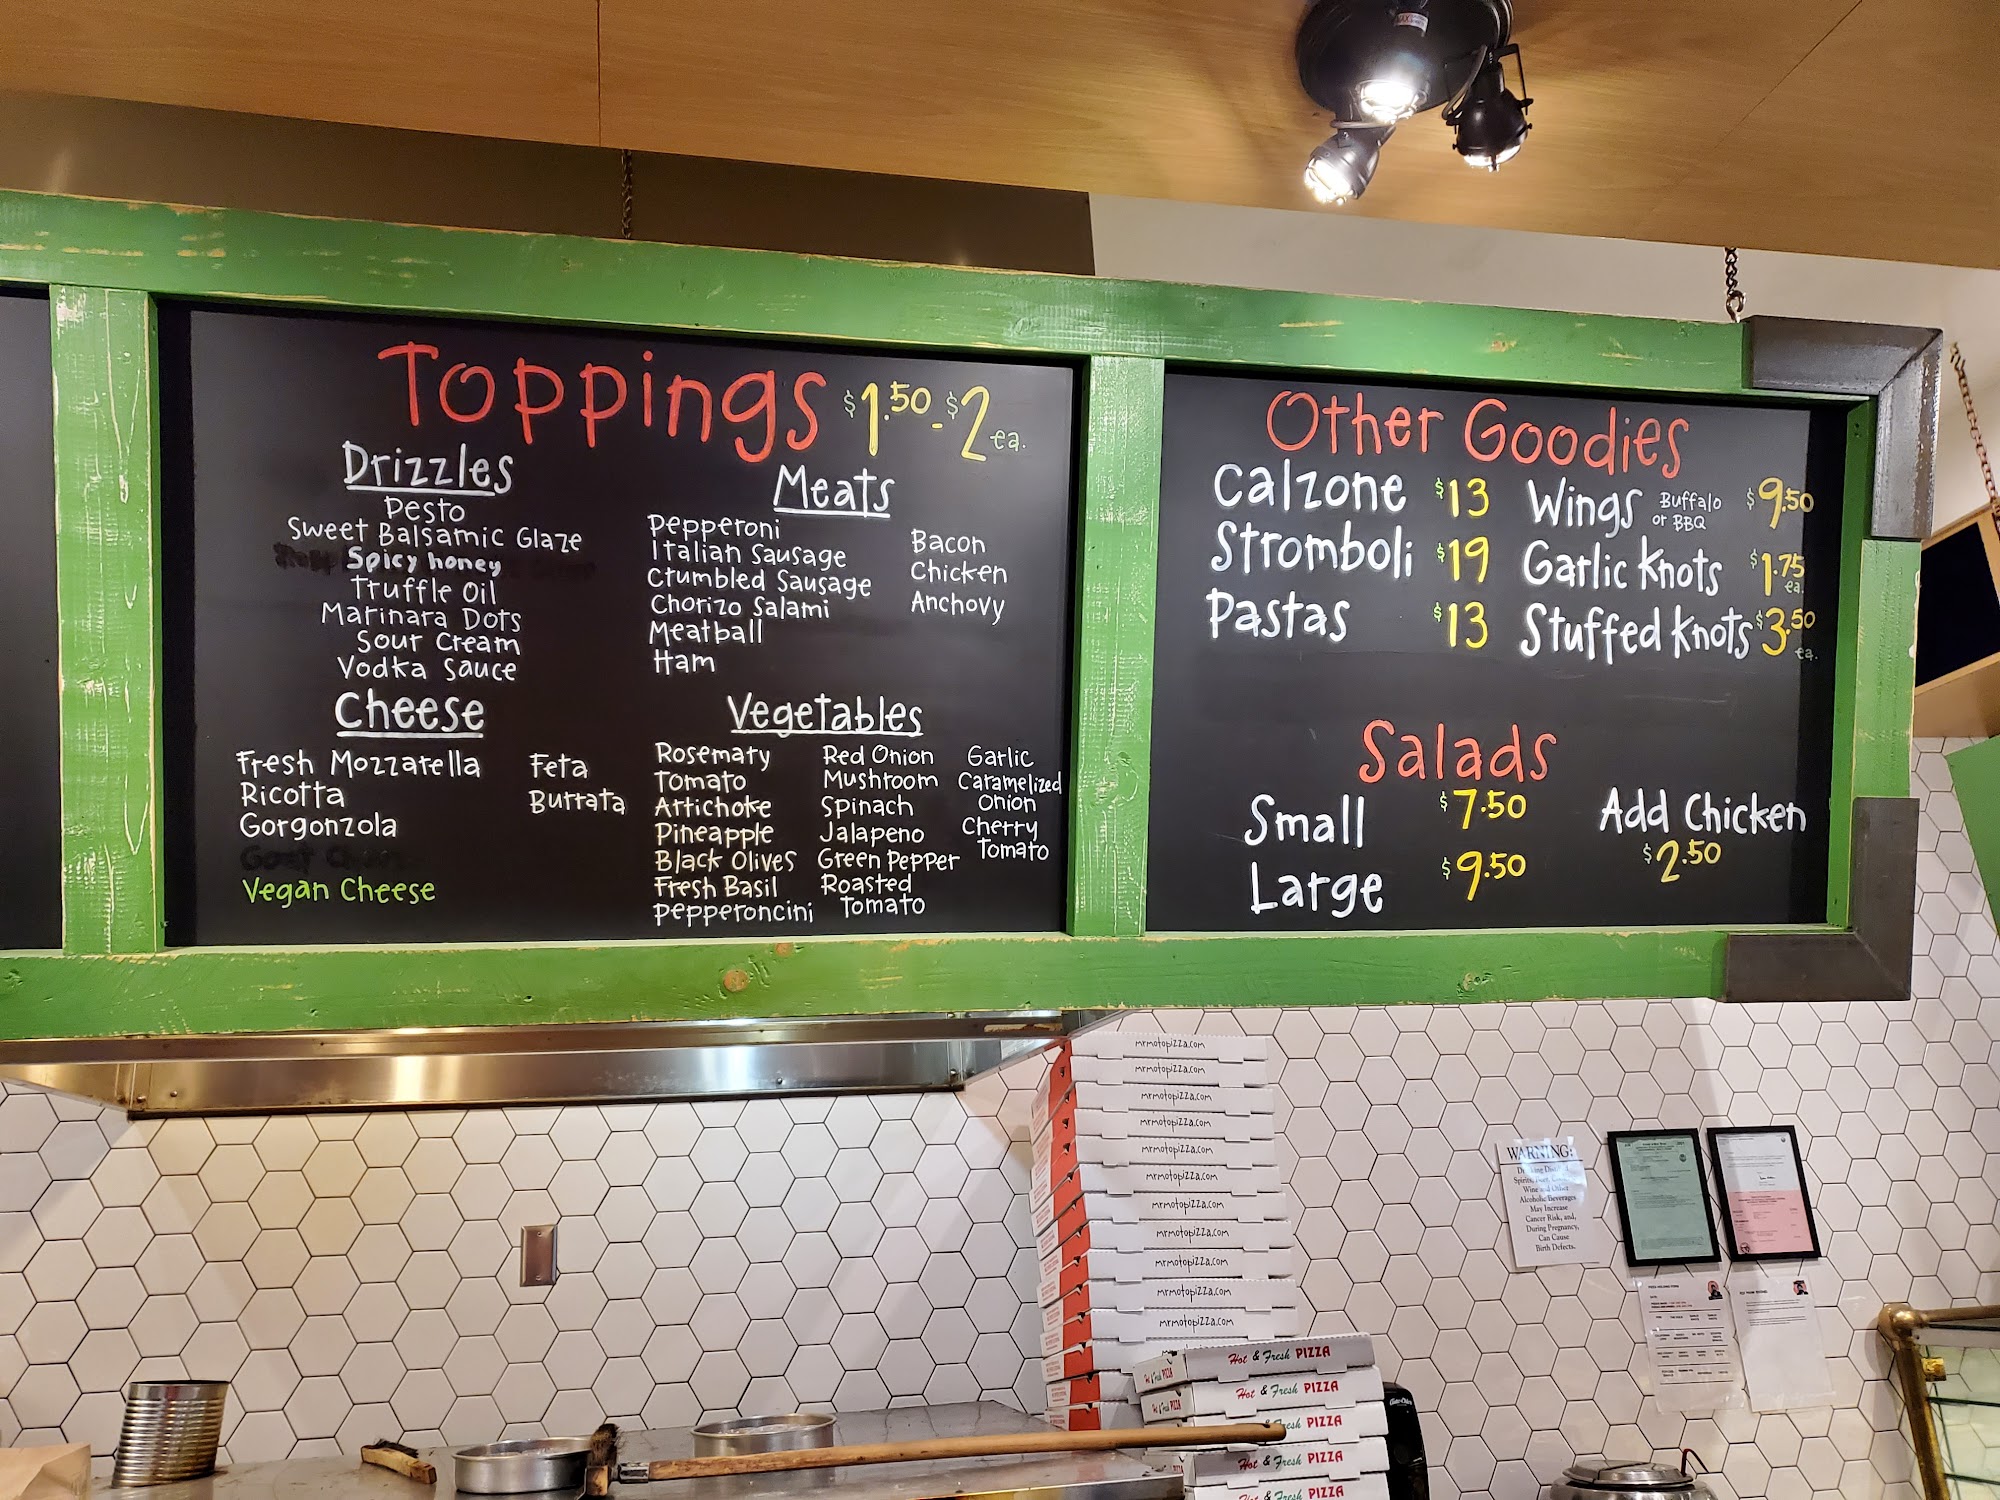 Toppings $1.50 - $2 ea.
Drizzles
Pesto
Sweet Balsamic Glaze
Spicy honey
Truffle Oil
Marinara Dots
Sour Cream
Vodka Sauce
Cheese
Fresh Mozzarella
Ricotta
Gorgonzola
Vegan Cheese
Feta
Burrata
Meats
Pepperoni
Italian Sausage
Crumbled Sausage
Chorizo Salami
Meatball
Ham
Bacon
Chicken
Anchovy
Vegetables
Rosemary
Tomato
Artichoke
Pineapple
Black Olives
Fresh Basil
Pepperoncini
Red Onion
Mushroom
Spinach
Jalapeno
Green Pepper
Roasted
Tomato
Garlic
Caramelized
Onion
Cherry
Tomato
Other Goodies
Calzone $13
Stromboli $19
Pastas $13
Wings Buffalo or BBQ $9.50
Garlic Knots $1.75 ea.
Stuffed Knots $3.50 ea.
Salads
Small $7.50
Large $9.50
Add Chicken
$2.50
mrmotopizza.com
mrmotopizza.com
mrmotopizza.com
mrmotopizza.com
mrmotopizza.com
mrmotopizza.com
mrmotopizza.com
mrmotopizza.com
mrmotopizza.com
mrmotopizza.com
mrmotopizza.com
Hot & Fresh PIZZA
Hot & Fresh PIZZA
Hot & Fresh PIZZA
Hot & Fresh PIZZA
Hot & Fresh PIZZA
WARNING:
Drinking Distilled
Spirits, Beer,
Wine and Other
Alcoholic Beverages
May Increase
Cancer Risk, and,
During Pregnancy,
Can Cause
Birth Defects.